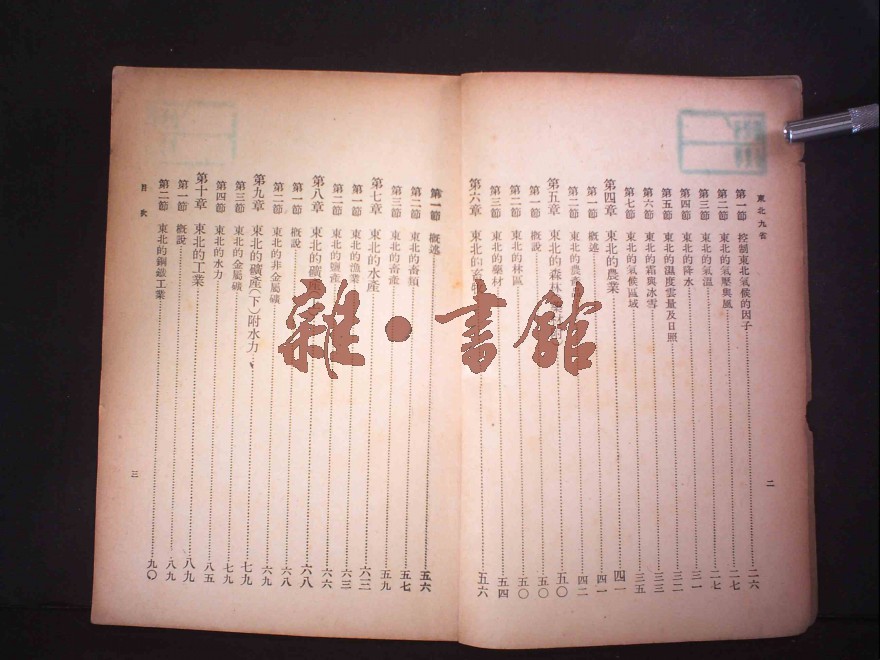 東北九省
第一節 控制東北氣候的因子 二六
第二節 東北的氣壓與風 二七
第三節 東北的氣溫 二七
第四節 東北的降水 三一
第五節 東北的溫度雲量及日照 三二
第六節 東北的霜與冰雪 三三
第七節 東北的氣候區域 三五
第四章 東北的農業 四一
第一節 概述 四一
第二節 東北的農產 四二
第五章 東北的森林 五〇
第一節 概說 五〇
第二節 東北的林區 五〇
第三節 東北的藥材 五四
第六章 東北的畜牧 五六
二
第一節 概述 五六
第二節 東北的畜類 五七
第三節 東北的畜產 五九
第七章 東北的水產 六三
第一節 東北的漁業 六三
第二節 東北的鹽產 六六
第八章 東北的礦產 六八
第一節 概說 六八
第二節 東北的非金屬礦 六九
第九章 東北的礦產(下)附水力 七九
第三節 東北的金屬礦 七九
第四節 東北的水力 八五
第十章 東北的工業 八九
第一節 概說 八九
第二節 東北的鋼鐵工業 九〇
目次
三
雜·書館